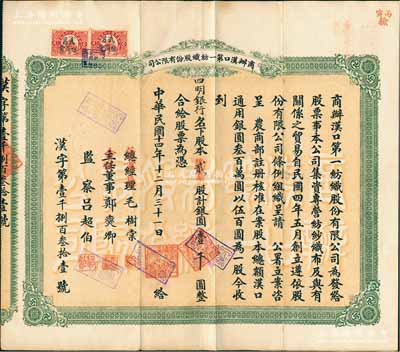 商辦漢口第一紡織股份有限公司
商辦漢口第一紡織股份有限公司為發給
股票事本公司集資專營紡紗織布及與有
關係之貿易自民國四年五月創立遵依股
份有限公司條例組織呈請
公署立案咨
呈
農商部註冊核准在案股本總額漢口
通用銀圓叁百萬圓以伍百圓為一股今收
到
四明銀行名下股本貳股計銀圓壹千圓整
合給股票為憑
中華民國十四年十二月三十一日
給
總經理毛樹棠
主任董事鄭奠卿
監察呂超伯
漢字第壹千捌百叁拾壹號